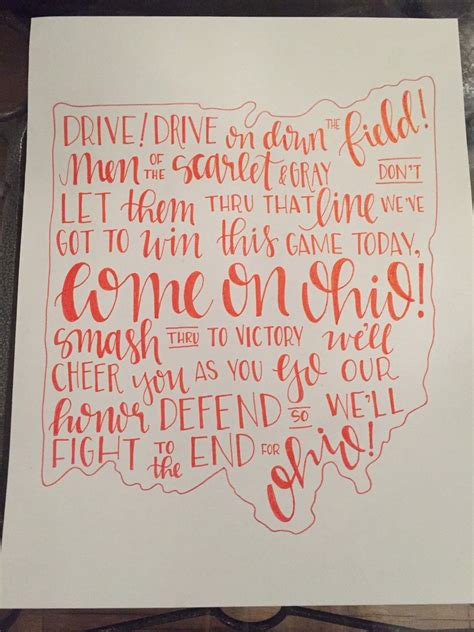 DRIVE! DRIVE on down THE field!
men OF THE scarlet & GRAY DON'T
LET them THRU THAT line WE'VE
GOT TO win this GAME TODAY,
Come on ohio!
smash THRU TO VICTORY we'll
CHEER you AS YOU Go OUR
honor DEFEND SO WE'LL
FIGHT TO the END FOR ohio!